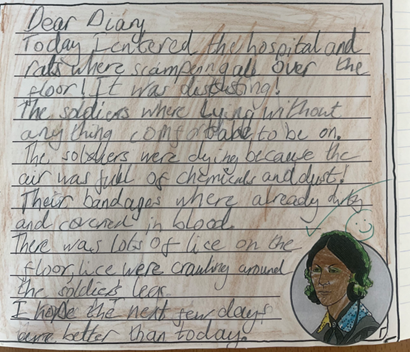 Dear Diary
Today I entered the hospital and
rats where scampering all over the
floor! It was disgusting!
The soldiers where lying without
anything comfortable to be on.
The soldiers were dying because the
air was full of chemicals and dust!
Their bandages where already dirty
and covered in blood.
There was lots of lice on the
floor, lice were crawling around
the soldiers legs.
I hope the next few days
are better than today.